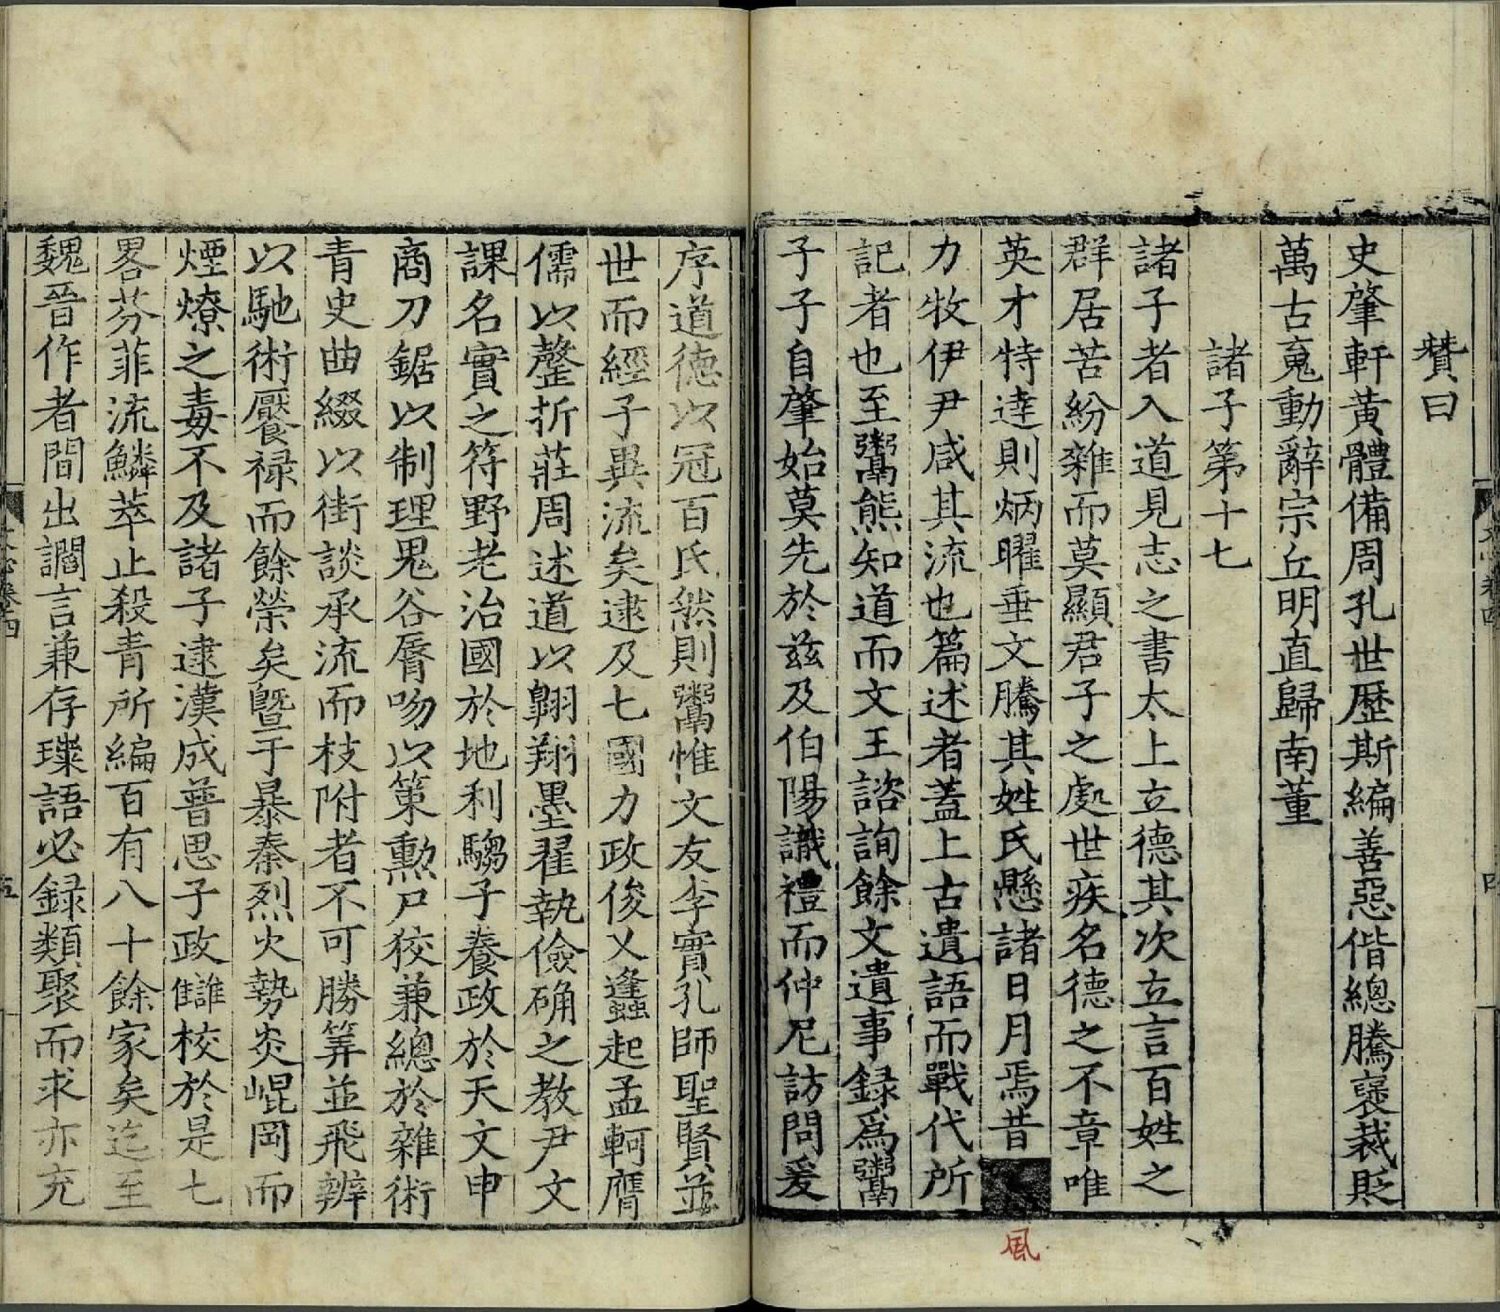 贊曰
史肇軒黃體備周孔世歷斯編善惡偕總騰褒裁貶
萬古䰟動辭宗丘明直歸南董
諸子第十七
諸子者入道見志之書太上立德其次立言百姓之
群居苦紛雜而莫顯君子之處世疾名德之不章唯
英才特達則炳曜垂文騰其姓氏懸諸日月焉昔
風
力牧伊尹咸其流也篇述者蓋上古遺語而戰代所
記者也至鬻熊知道而文王諮詢餘文遺事録爲鬻
子子自肇始莫先於兹及伯陽識禮而仲尼訪問爰
序道德以冠百氏然則鬻惟文友李實孔師聖賢並
世而經子異流矣逮及七國力政俊乂蠭起孟軻膺
儒以磬折莊周述道以翱翔墨翟執儉确之教尹文
課名實之符野老治國於地利騶子養政於天文申
商刀鋸以制理鬼谷脣吻以策勲尸狡兼總於雜術
青史曲綴以街談承流而枝附者不可勝筭並飛辨
以馳術饜禄而餘榮矣曁于暴秦烈火勢炎崐岡而
煙燎之毒不及諸子逮漢成普思子政讎校於是七
畧芬菲流鱗萃止殺青所編百有八十餘家矣迄至
魏晉作者間出讕言兼存璅語必録類聚而求亦充